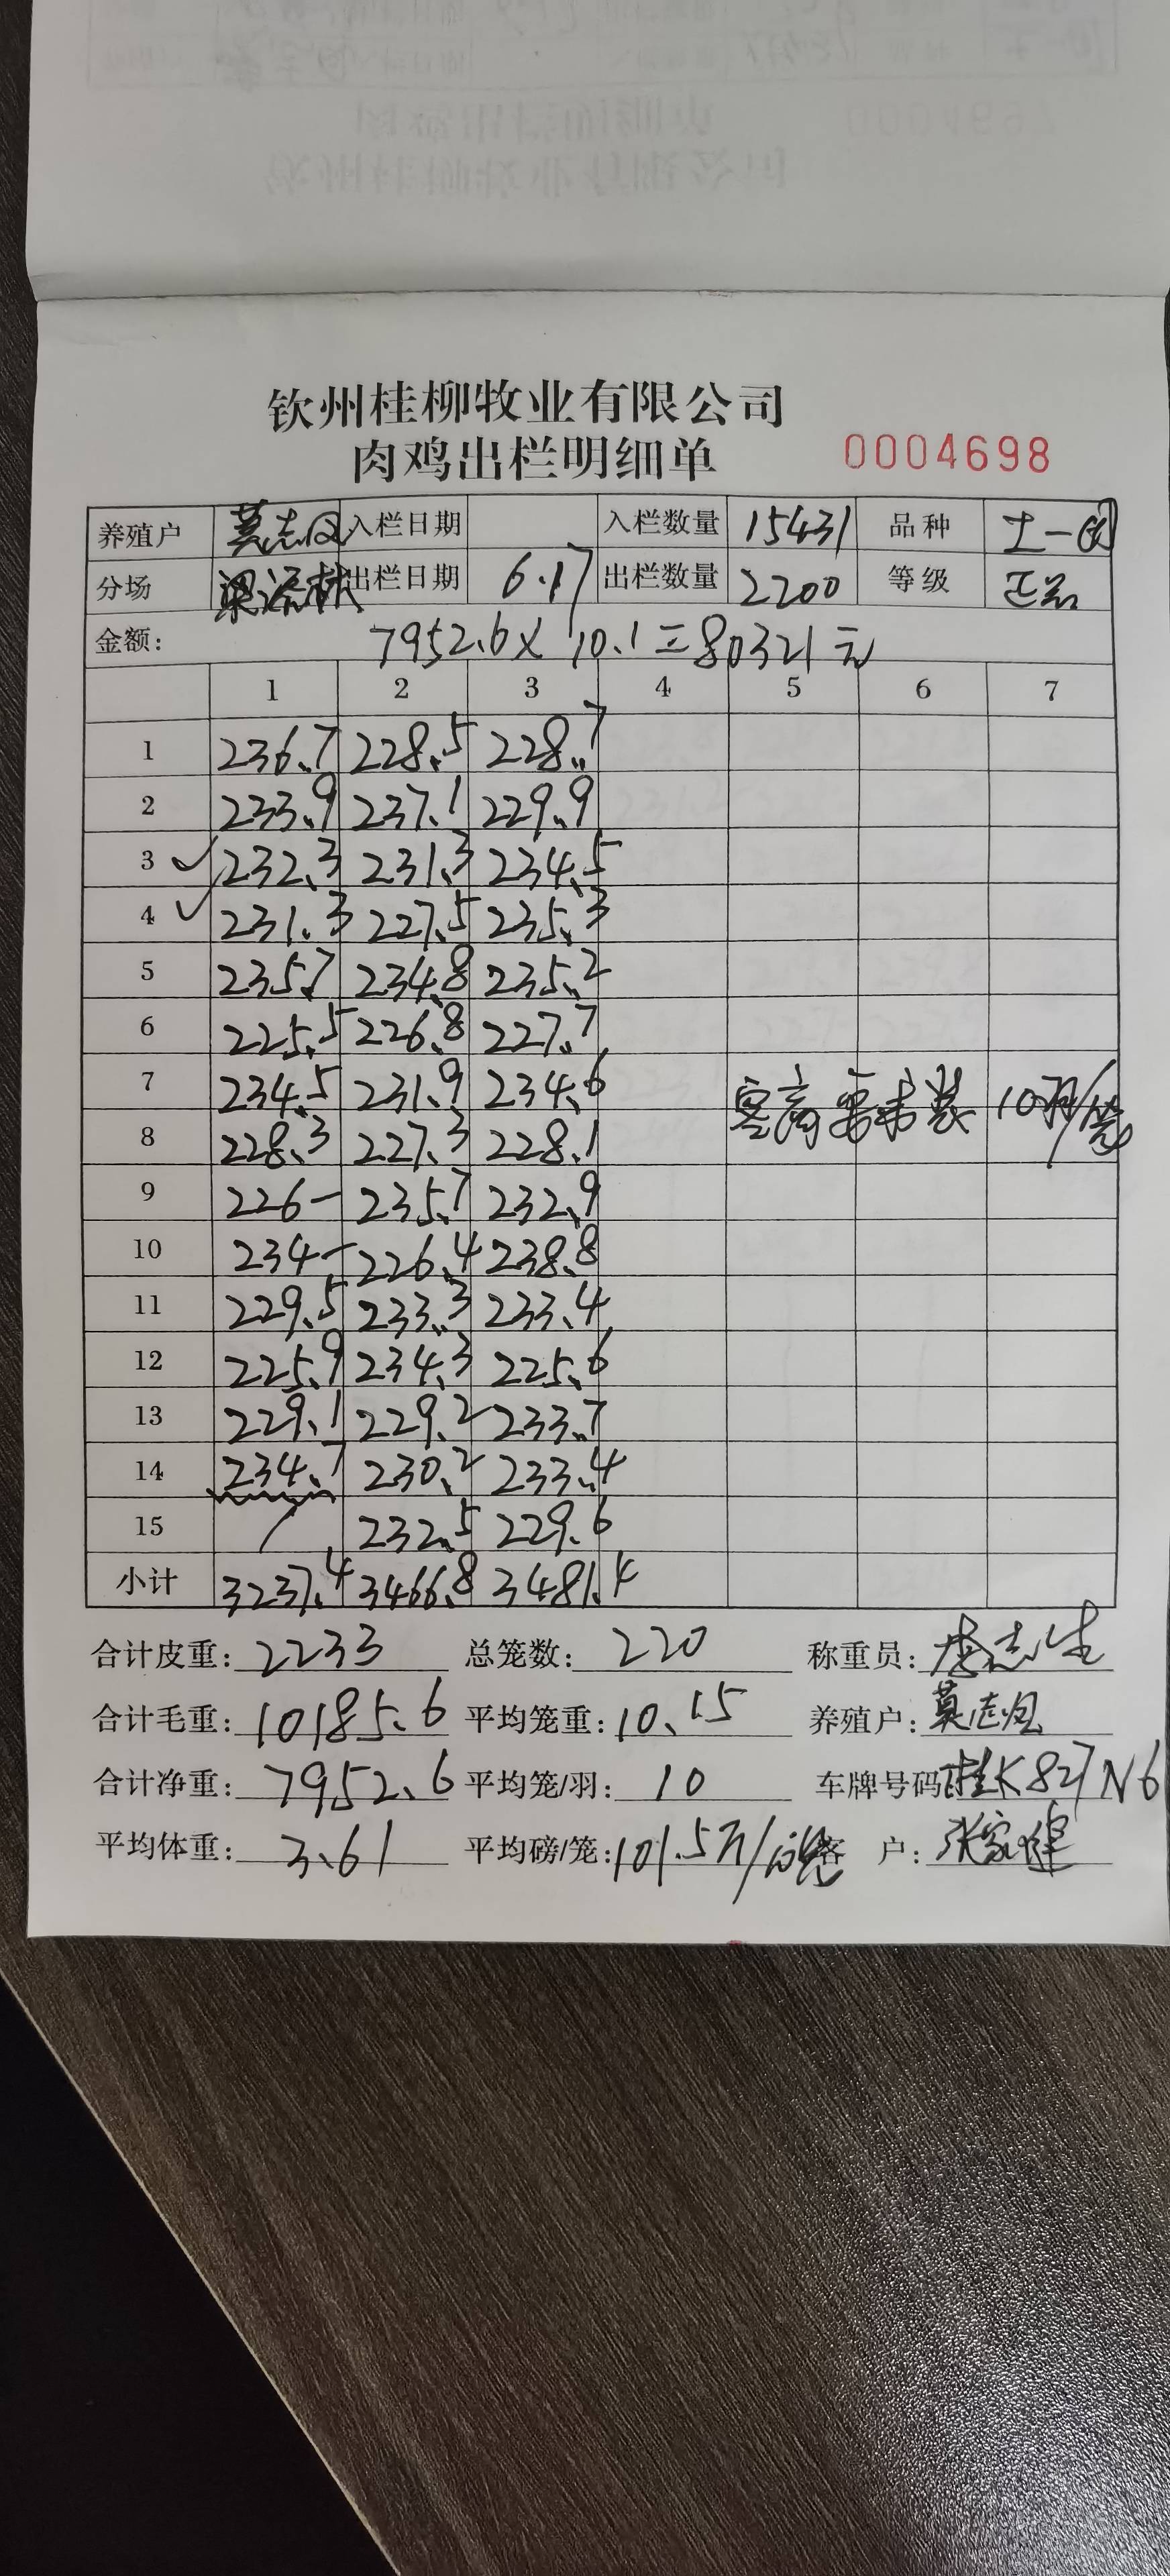 钦州桂柳牧业有限公司
肉鸡出栏明细单 0004698
养殖户 莫志凤 入栏日期 入栏数量 15431 品种 土一
分场 梁添林 出栏日期 6.17 出栏数量 2200 等级 正品
金额: 7952.6×10.1=80321元
1 2 3 4 5 6 7
1 236.7 228.5 228.7
2 233.9 237.1 229.9
3 ✓ 232.3 231.3 234.5
4 ✓ 231.3 227.5 235.3
5 235.7 234.8 235.2
6 225.5 226.8 227.7
7 234.5 231.9 234.6 客商要求装10只/笼
8 228.3 227.3 228.1
9 226- 235.7 232.9
10 234- 226.4 238.8
11 229.5 233.3 233.4
12 225.9 234.3 225.6
13 229.1 229.2 233.7
14 234.7 230.2 233.4
15 / 232.5 229.6
小计 3237.4 3466.8 3481.4
合计皮重: 2233 总笼数: 220 称重员: 志生
合计毛重: 10185.6 平均笼重: 10.15 养殖户: 莫志凤
合计净重: 7952.6 平均笼/羽: 10 车牌号码: 桂K827N6
平均体重: 3.61 平均磅/笼: 101.5 客 户: 张家健